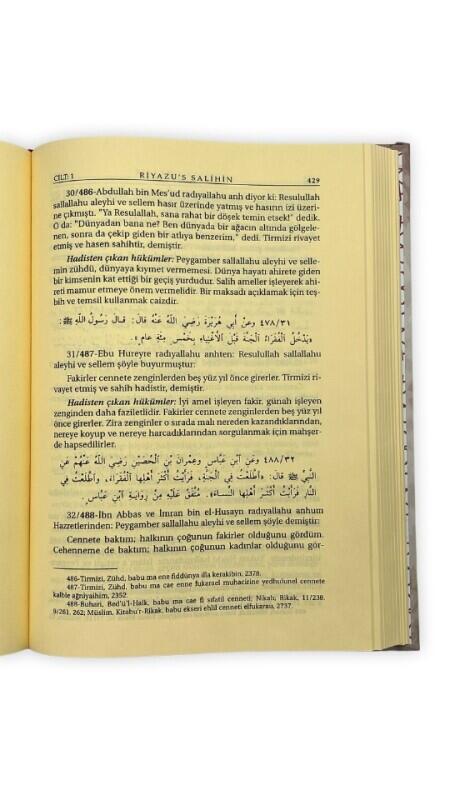 CİLT: 1 RİYAZU'S SALİHİN 429
30/486-Abdullah bin Mes'ud radıyallahu anh diyor ki: Resulullah
sallallahu aleyhi ve sellem hasır üzerinde yatmış ve hasırın izi üzeri-
ne çıkmıştı. "Ya Resulallah, sana rahat bir döşek temin etsek!" dedik.
O da: "Dünyadan bana ne? Ben dünyada bir ağacın altında gölgele-
nen, sonra da çekip giden bir atlıya benzerim," dedi. Tirmizi rivayet
etmiş ve hasen sahihtir, demiştir.
Hadisten çıkan hükümler: Peygamber sallallahu aleyhi ve selle-
min zühdü, dünyaya kıymet vermemesi. Dünya hayatı ahirete giden
bir kimsenin kat ettiği bir geçiş yurdudur. Salih ameller işleyerek ahi-
reti mamur etmeye önem vermelidir. Bir maksadı açıklamak için teş-
bih ve temsil kullanmak caizdir.
٤٧٨/٣١ وعَنْ أَبِي هُرَيْرَةَ رَضِيَ اللهُ عَنْهُ قَالَ: قَالَ رَسُولُ اللهِ ﷺ:
«يَدْخُلُ الْفُقَرَاءُ الْجَنَّةَ قَبْلَ الْأَغْنِيَاءِ بِخَمْسِ مِئَةِ عَامٍ».
31/487-Ebu Hureyre radıyallahu anhten: Resulullah sallallahu
aleyhi ve sellem şöyle buyurmuştur:
Fakirler cennete zenginlerden beş yüz yıl önce girerler. Tirmizi ri-
vayet etmiş ve sahih hadistir, demiştir.
Hadisten çıkan hükümler: İyi amel işleyen fakir, günah işleyen
zenginden daha faziletlidir. Fakirler cennete zenginlerden beş yüz yıl
önce girerler. Zira zenginler o sırada malı nereden kazandıklarından,
nereye koyup ve nereye harcadıklarından sorgulanmak için mahşer-
de hapsedilirler.
٤٨٨/٣٢ وَعَنِ ابْنِ عَبَّاسٍ وعِمْرَانَ بْنِ الْحُصَيْنِ رَضِيَ اللهُ عَنْهُمْ عَنِ
النَّبِيِّ ﷺ قَالَ: «اطَّلَعْتُ فِي الْجَنَّةِ، فَرَأَيْتُ أَكْثَرَ أَهْلِهَا الْفُقَرَاءَ، وَاطَّلَعْتُ فِي
النَّارِ فَرَأَيْتُ أَكْثَرَ أَهْلِهَا النِّسَاءَ». مُتَّفَقٌ عَلَيْهِ مِنْ رِوَايَةِ ابْنِ عَبَّاسٍ.
32/488-İbn Abbas ve İmran bin el-Husayn radıyallahu anhum
Hazretlerinden: Peygamber sallallahu aleyhi ve sellem şöyle demiştir:
Cennete baktım; halkının çoğunun fakirler olduğunu gördüm.
Cehenneme de baktım; halkının çoğunun kadınlar olduğunu gör-
486-Tirmizi, Zühd, babu ma ene fiddünya illa kerakibin, 2378.
487-Tirmizi, Zühd, babu ma cae enne fukarael muhacirine yedhulunel cennete
kable ağniyaihim, 2352.
488-Buhari, Bed'ü'l-Halk, babu ma cae fi sıfatil cenneti; Nikah; Rikak, 11/238,
9/261, 262; Müslim, Kitabu'r-Rikak, babu ekseri ehlil cenneti elfukarau, 2737.